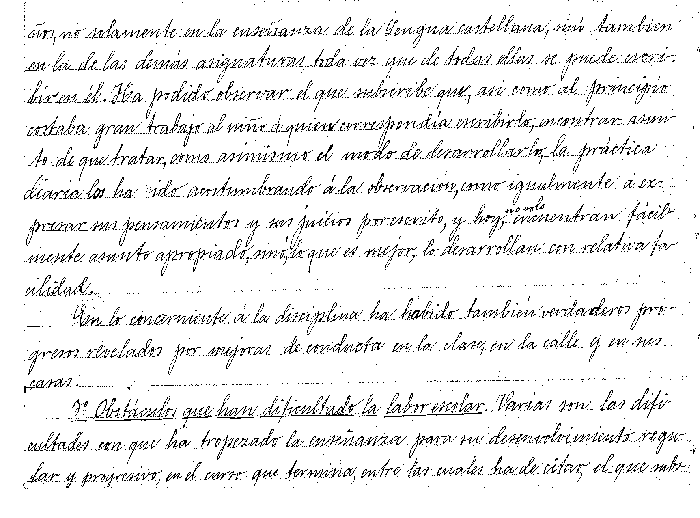 ños, no solamente en la enseñanza de la Lengua castellana, sinó tambien
en la de las demás asignaturas toda vez que de todas ellas se puede escri-
bir en él. Ha podido observar el que subscribe que, asi como al principio
costaba gran trabajo al niño á quien correspondia escribirlo, encontrar asun-
to de que tratar, como asimismo el modo de desarrollarlo, la práctica
diaria los ha ido acostumbrando á la observación, como igualmente á ex-
presar sus pensamientos y sus juicios por escrito, y hoy, no solo encuentran fácil-
mente asunto apropiado, sinó, lo que es mejor, lo desarrollan con relativa fa
cilidad.
En lo concerniente á la disciplina ha habido también verdaderos pro-
gresos revelados por mejoras de conducta en la clase, en la calle y en sus
casas.
7º Obstáculos que han dificultado la labor escolar. Varias son las difi-
cultades con que ha tropezado la enseñanza para su desenvolvimiento regu-
lar y progresivo, en el curso que termina, entre las cuales ha de citar, el que subs-